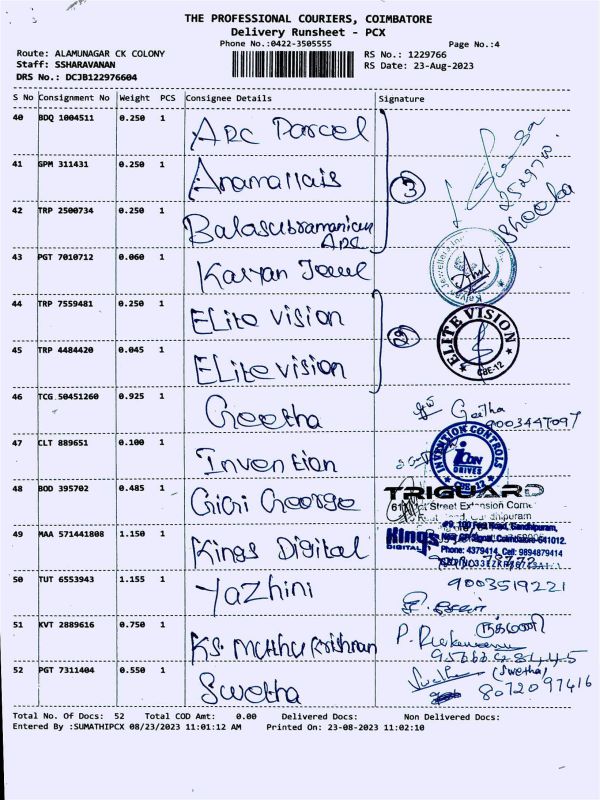 THE PROFESSIONAL COURIERS, COIMBATORE
Delivery Runsheet - PCX
Phone No.:0422-3505555 Page No.:4
Route: ALAMUNAGAR CK COLONY RS No.: 1229766
Staff: SSHARAVANAN RS Date: 23-Aug-2023
DRS No.: DCJB122976604
S No Consignment No Weight PCS Consignee Details Signature
40 BDQ 1004511 0.250 1 ARC Parcel
41 GPM 311431 0.250 1 Anamallais
3
42 TRP 2500734 0.250 1 Balasubramanian
ARC
Sheeba
43 PGT 7010712 0.060 1 Kalyan Jewel
44 TRP 7559481 0.250 1 Elite vision
2
ELITE VISION
CBE-12
45 TRP 4484420 0.045 1 Elite vision
46 TCG 50451260 0.925 1 Geetha Geetha
9003447097
47 CLT 889651 0.100 1 Invention
INVENTION CONTROLS
ICON
DRIVES
48 BOD 395702 0.485 1 Gigi George
TRIGUARD
Street Extension
49 MAA 571441808 1.150 1 Kings Digital
King's
DIGITAL
#9, 100 Feet Road, Gandhipuram,
Near GP Signal, Coimbatore-641012.
Phone: 4379414, Cell: 9894879414
50 TUT 6553943 1.155 1 Yazhini 9003519221
51 KVT 2889616 0.750 1 KS. Muthu Krishnan
52 PGT 7311404 0.550 1 Swetha (Swetha)
8072097416
Total No. Of Docs: 52 Total COD Amt: 0.00 Delivered Docs: Non Delivered Docs:
Entered By :SUMATHIPCX 08/23/2023 11:01:12 AM Printed On: 23-08-2023 11:02:10